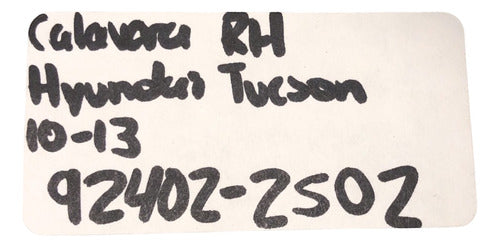 Calavera RH
Hyundai Tucson
10-13
92402-2S02